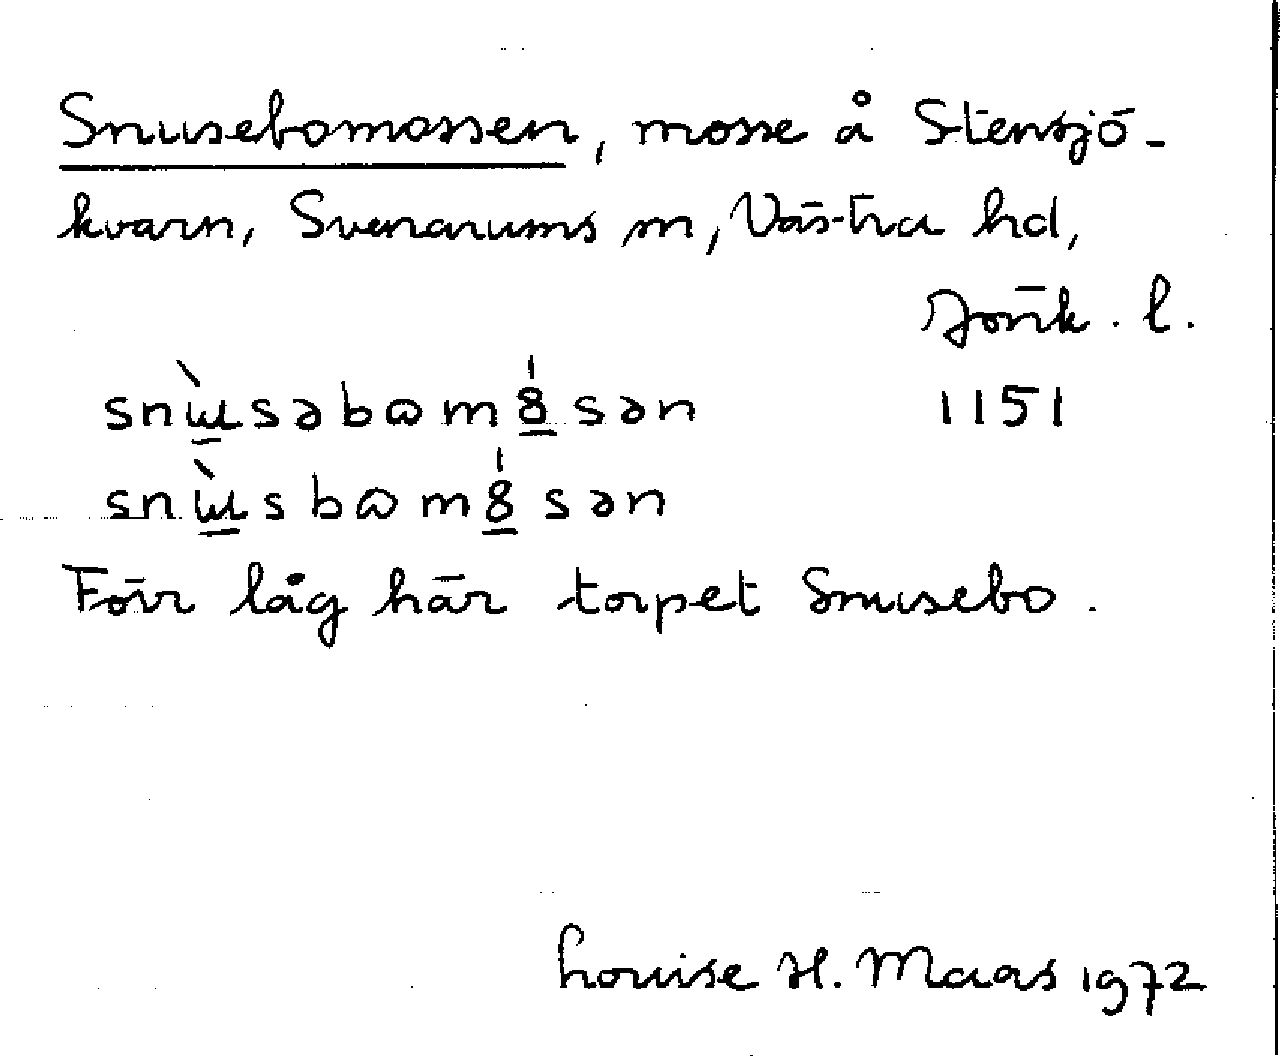 Snusebomossen, mosse å Stensjö-
kvarn, Svenarums sn, Västra hd,
Jönk. l.
snɯ�,̀səbωm8́sən 1151
snɯ̀sbωm8́sən
Förr låg här torpet Snusebo.
Louise H. Maas 1972